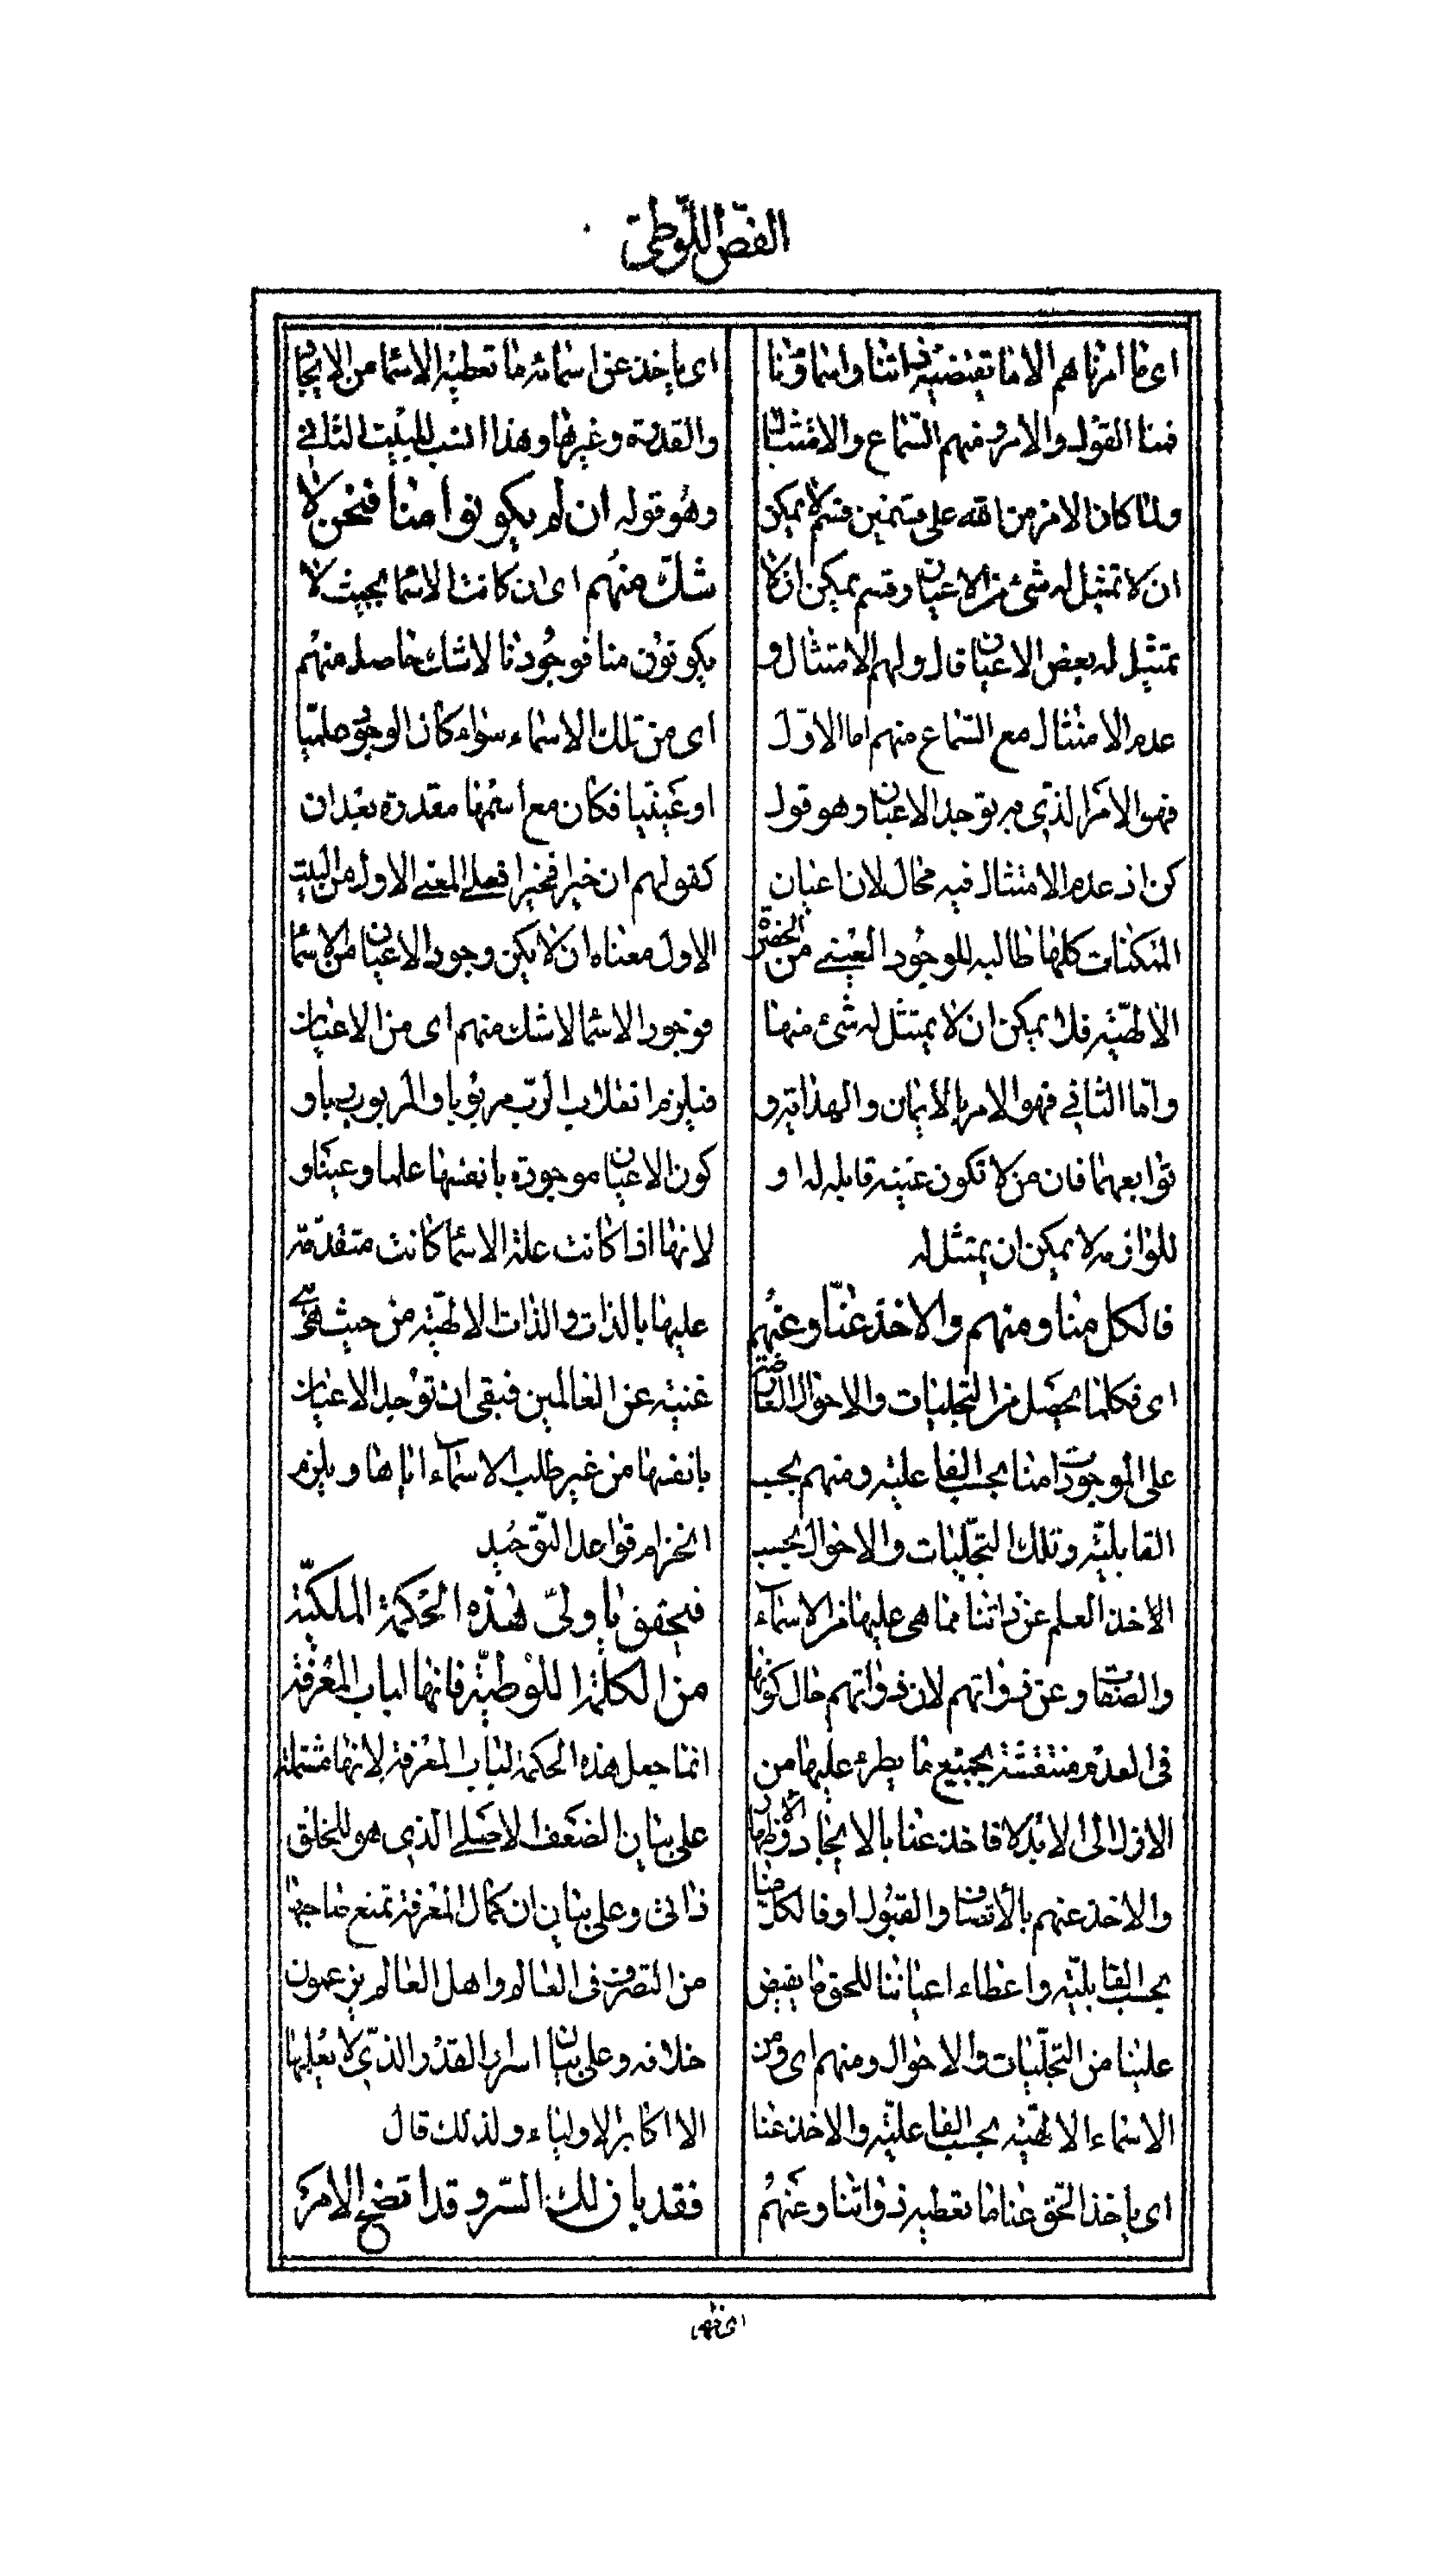 الفصّ اللّوطىّ
اى ما امرناهم الا ما تقتضيه ذاتنا واسماؤنا
فمنا القول والامر ومنهم السّماع والامتثال
ولمّا كان الامر من الله على قسمين قسم لا يمكن
ان لا تمتثل له شئ من الاعيان وقسم يمكن ان لا
يمتثل له بعض الاعيان قال ولهم الامتثال و
عدم الامتثال مع السّماع منهم اما الاوّل
فهو الامر الذى به توجد الاعيان وهو قول
كن اذ عدم الامتثال فيه محال لان اعيان
الممكنات كلها طالبه للوجود العينى من الحضرة
الالهيّه فلا يمكن ان لا يمتثل له شئ منها
وامّا الثانى فهو الامر بالايمان والهداية و
توابعهما فان من لا تكون عينه قابله له او
للوازمه لا يمكن ان يمتثل له
فالكل منّا ومنهم والاخذ عنّا وعنهم
اى فكلما يحصل من التجليات والاحوال الفايضة
على الموجودات منا بحسب الفاعليّه ومنهم بحسب
القابليّه وتلك التجلّيات والاحوال بحسب
الاخذ العلم عن ذاتنا مما هى عليها من الاسماء
والصفات وعن ذواتهم لان ذواتهم حال كونها
فى العدم منتقشة بجميع ما يطرء عليها من
الازل الى الابد فالاخذ عنا بالايجاد والاظهار
والاخذ عنهم بالاتصاف والقبول او فالكل منا
بحسب القابليّه واعطاء اعياننا للحق ما يفيض
علينا من التجلّيات والاحوال ومنهم اى ومن
الاسماء الالهيّه بحسب الفاعليّه والاخذ عنا
اى ياخذ الحق عنا ما تعطيه ذواتنا وعنهم
اى ياخذ عن اسمائه ما تعطيه الاسما من الايجاد
والقدرة وغيرها وهذا انسب للبيت الثانى
وهو قوله ان لم يكونوا منا فنحن لا
شكّ منهم اى ان كانت الاسما بحيث لا
يكونون منا فوجودنا لا شك حاصل منهم
اى من تلك الاسماء سواء كان الوجود علميّا
او عينيّا فكان مع اسمها مقدرة بعد ان
كقولهم ان خيرا فخيرا فعلى المعنى الاول من البيت
الاول معناه ان لا يكن وجود الاعيان من الاسما
فوجود الاسما لا شك منهم اى من الاعيان
فيلزم انقلاب الرّب مربوبا والمربوب ربا و
كون الاعيان موجوده بانفسها علما وعينا و
لانها اذا كانت علة الاسما كانت متقدّمة
عليها بالذات والذات الالهيّه من حيث هى هى
غنيّه عن العالمين فبقى ان توجد الاعيان
بانفسها من غير طلب الاسماء اياها ويلزم
انخرام قواعد التّوحيد
فتحقق يا ولىّ هذه الحكمة الملكيّة
من الكلمة اللوطيّة فانها لباب المعرفة
انما جعل هذه الحكمة لباب المعرفة لانها مشتملة
على بيان الضعف الاصلى الذى هو للخلق
ذاتى وعلى بيان ان كمال المعرفة تمنع صاحبها
من التصرف فى العالم واهل العالم يزعمون
خلافه وعلى بيان اسرار القدر الذى لا يعلمها
الا اكابر الاولياء ولذلك قال
فقد بان لك السّر وقد اتضح الامر
اى ظهر